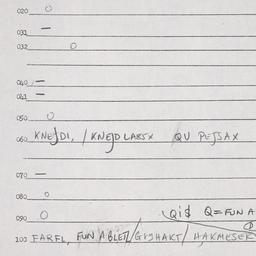 020 O
031 —
032 O
040 —
041 —
050 O
060 KNEJDI, / KNEJD LABSX QU PEJSAX
070 —
080 O
090 O Qid Q=FUN A
100 FAREL, FUN ABLET/GISHAKT/ HAKMESER